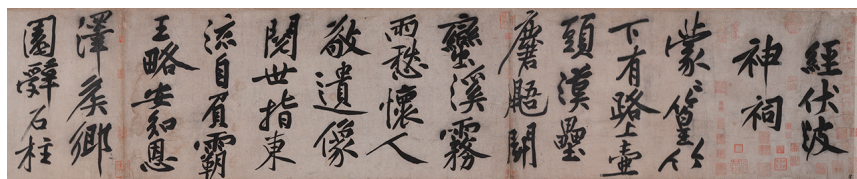 經伏波
神祠
蒙〻篁竹
下有路上壺
頭漢壘
麏鼯鬬
蠻溪霧
雨愁懷人
敬遺像
閱世指東
流自負霸
王略安知恩
澤侯鄉
園辭石柱